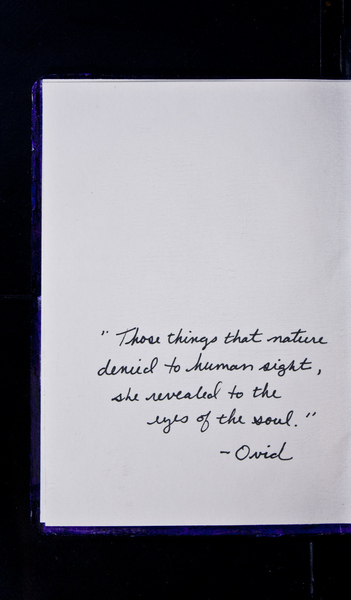 " Those things that nature
denied to human sight,
she revealed to the
eyes of the soul. "
- Ovid